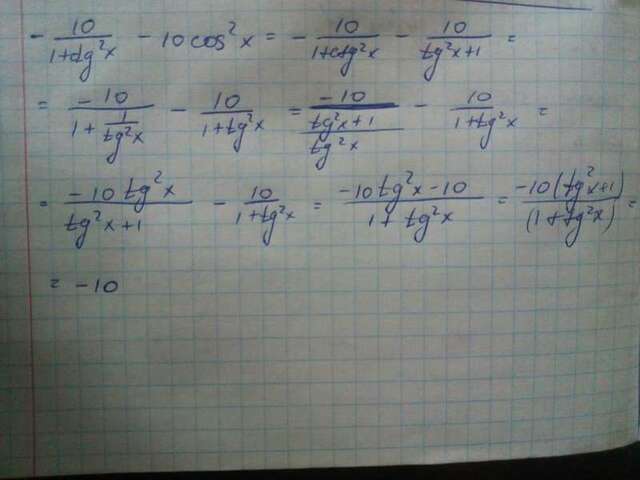 - 10/(1+ctg²x) - 10cos²x = - 10/(1+ctg²x) - 10/(tg²x+1) =
= -10/(1 + 1/tg²x) - 10/(1+tg²x) = -10/((tg²x+1)/tg²x) - 10/(1+tg²x) =
= -10tg²x/(tg²x+1) - 10/(1+tg²x) = (-10tg²x-10)/(1+tg²x) = -10(tg²x+1)/(1+tg²x) =
= -10